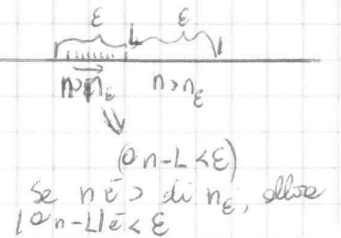 ε L ε
n>n_ε n>n_ε
(an-L<ε)
Se n è > di n_ε, allora
|an-L| è < ε